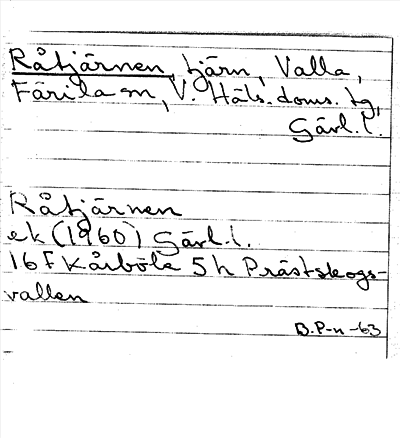 Råtjärnen, tjärn, Valla,
Färila sn, V. Häls. doms. tg,
Gävl. l.
Råtjärnen
ek (1960) Gävl. l.
16 F Kårböle 5 h Prästskogs-
vallen
B.P-n -63